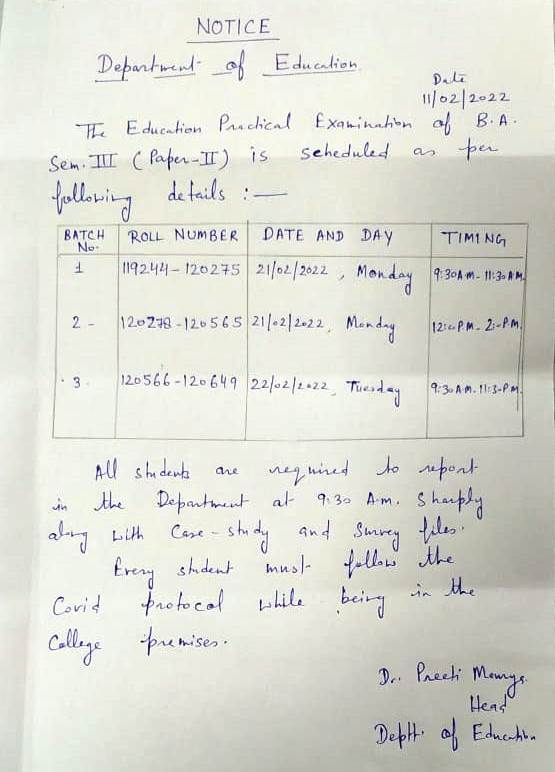 NOTICE
Department of Education
Date
11/02/2022
The Education Practical Examination of B.A.
Sem. III (Paper-II) is scheduled as per
following details :—
BATCH No. ROLL NUMBER DATE AND DAY TIMING
1 119244-120275 21/02/2022, Monday 9:30 A.M.-11:30 A.M.
2 - 120278-120565 21/02/2022, Monday 12:00 P.M.-2:00 P.M.
3. 120566-120649 22/02/2022, Tuesday 9:30 A.M.-11:30 P.M.
All students are required to report
in the Department at 9:30 A.m. Sharply
along with Case-study and Survey files.
Every student must follow the
Covid protocal while being in the
College premises.
Dr. Preeti
Head
Deptt. of Education